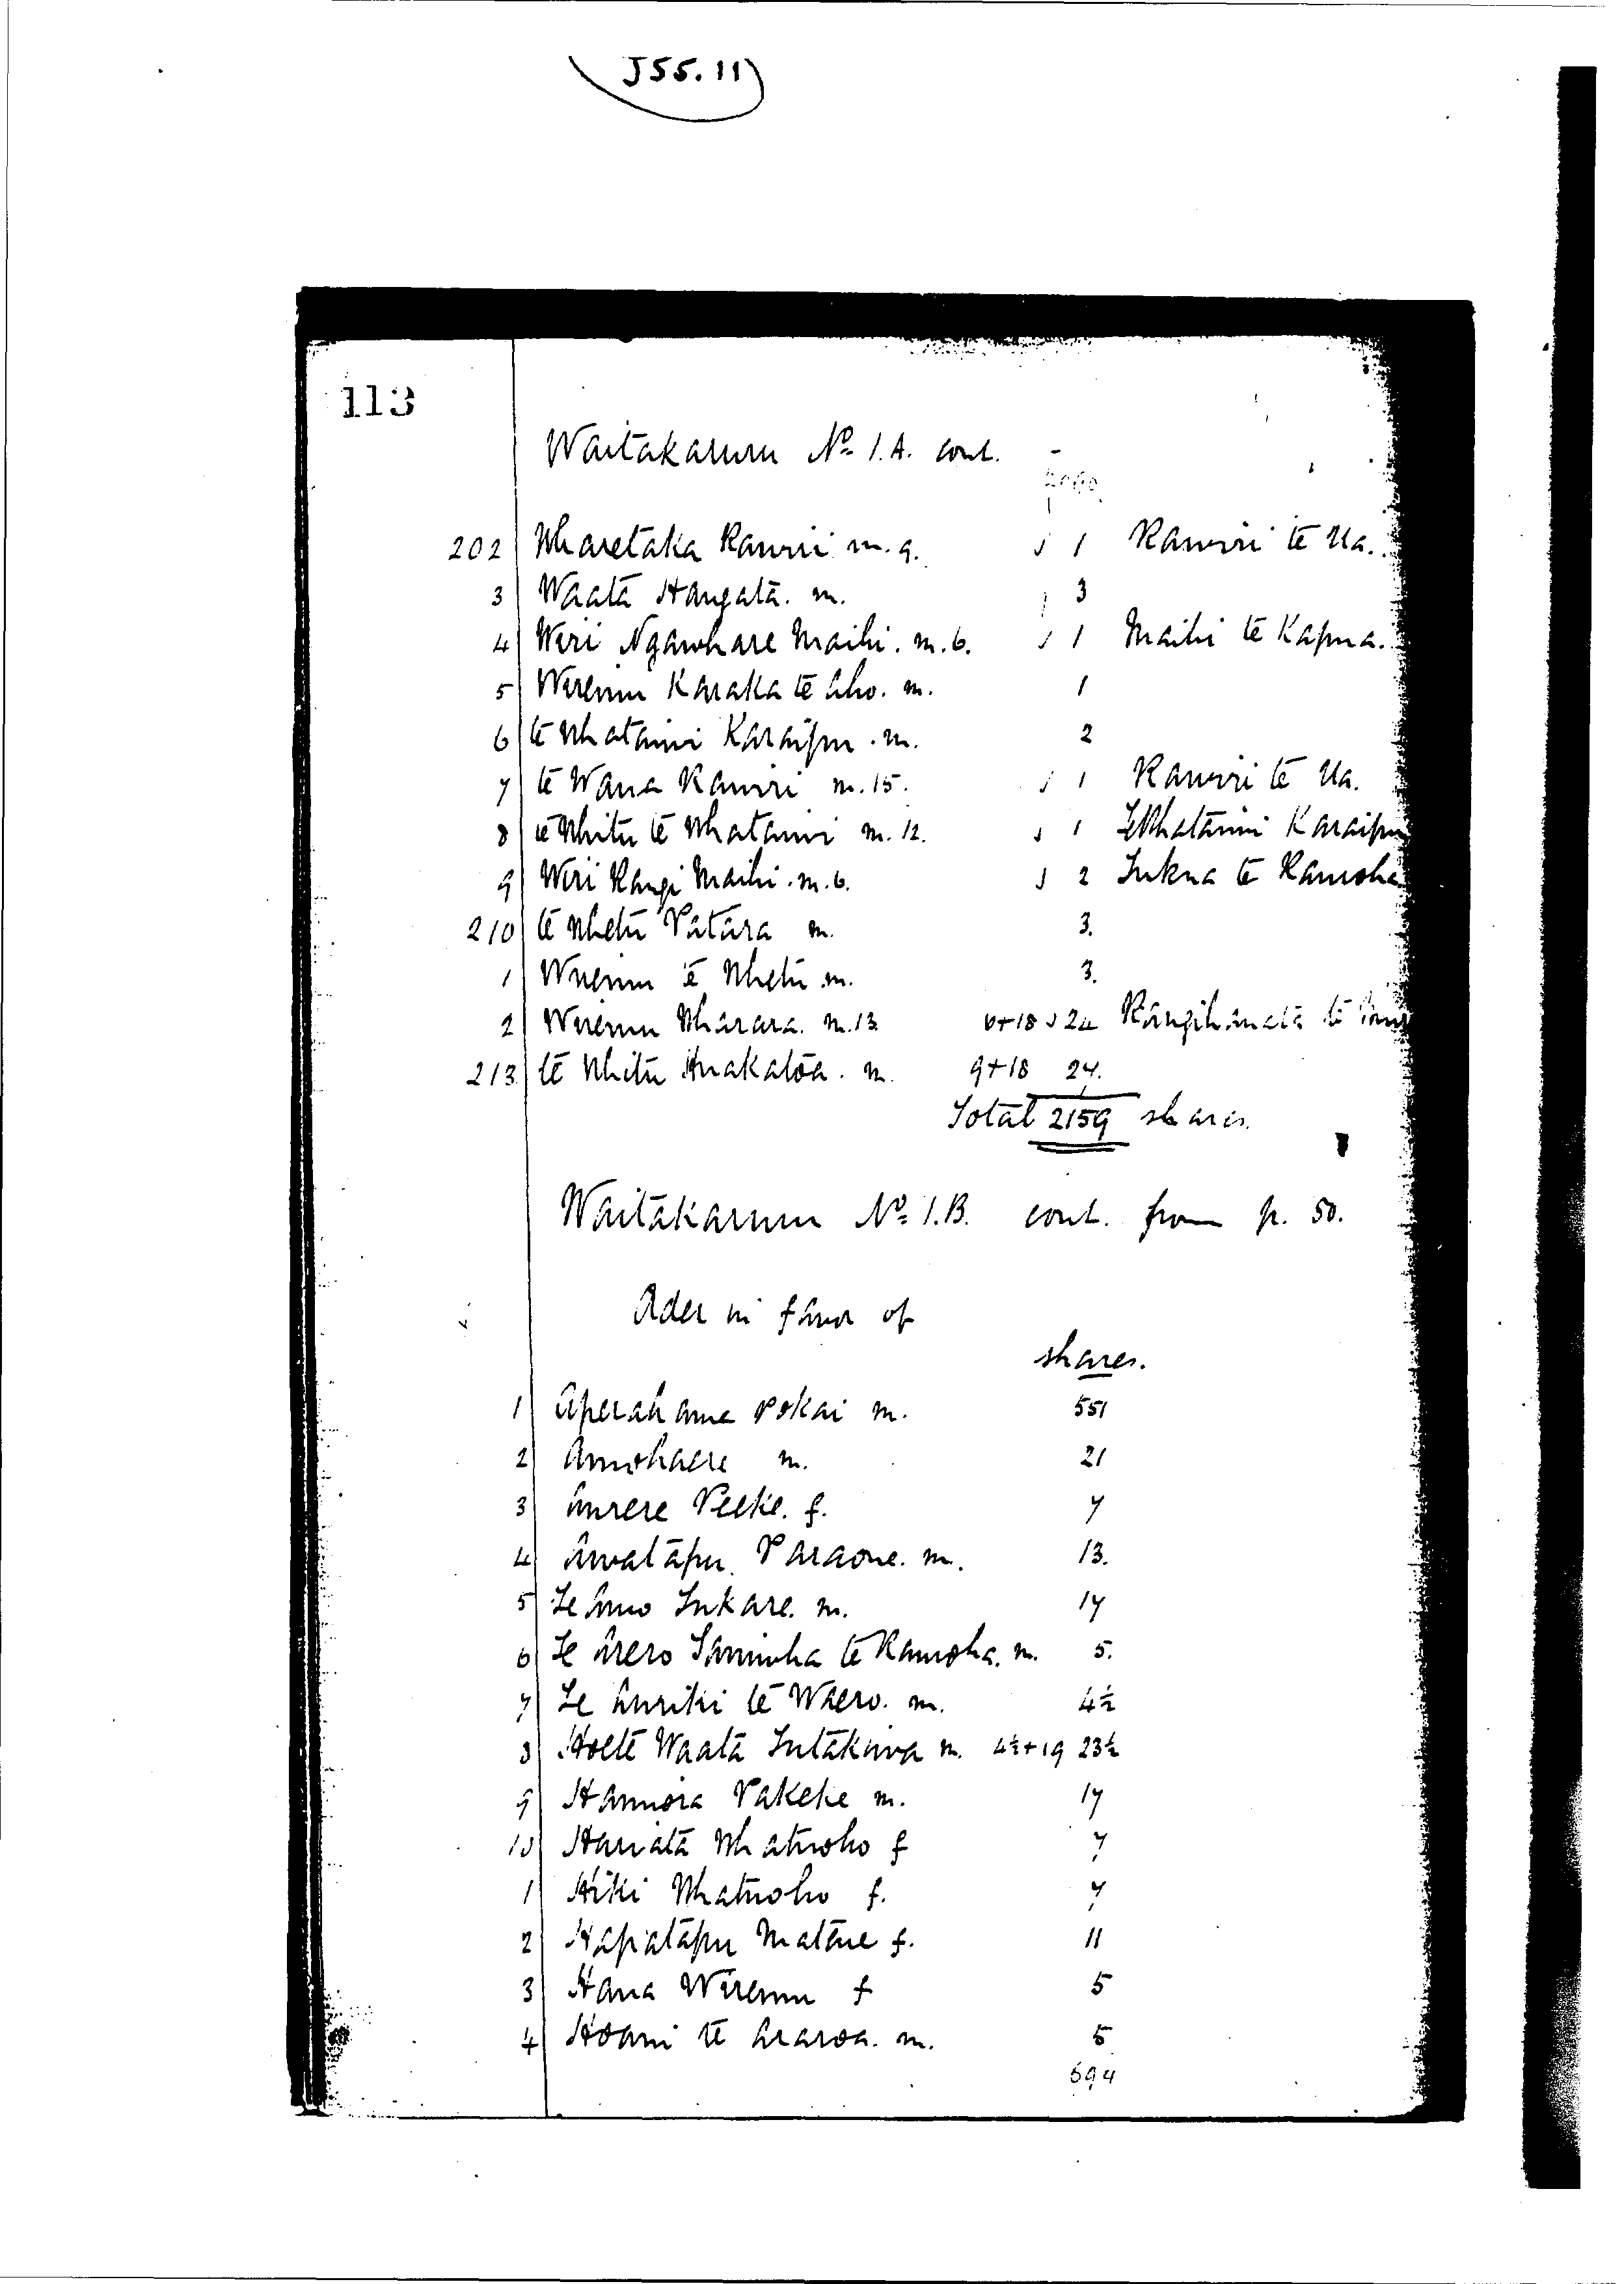 J55.11
113
Waitakaruru No 1.A. cont.
202 Wharetaka Rawiri m. 9. J 1 Rawiri te Ua.
3 Waata Hangata. m. 3
4 Wiri Ngawhare Maihi. m. 6. J 1 Maihi te Kapua.
5 Wiremu Karaka te Aho. m. 1
6 te Whatanui Karaipu. m. 2
7 te Wana Rawiri m. 15. J 1 Rawiri te Ua.
8 te Whitu te Whatanui m. 12. J 1 Te Whatanui Karaipu
9 Wiri Rangi Maihi. m. 6. J 2 Tukua te Rauroha
210 te Whetu Patara m. 3.
1 Wiremu te Whetu m. 3.
2 Wiremu Wharara. m. 13 6+18 J 24 Rangihanata te
213 te Whitu Huakatoa. m. 9+18 27.
Total 2159 shares.
Waitakaruru No 1.B. cont. from p. 50.
Order in favor of
shares.
1 Aperahama Pokai m. 551
2 Amohaere m. 21
3 Aurere Peeke. f. 7
4 Awatapu Paraone. m. 13.
5 Te Amo Tukare. m. 17
6 Te Arero Taniwha te Rauroha. m. 5.
7 Te Auriki te Waero. m. 4½
8 Hoete Waata Tutakawa m. 4½+19 23½
9 Hamiora Pakeke m. 17
10 Hariata Whatuoho f 7
1 Hiki Whatuoho f. 7
2 Hapiatapu Matene f. 11
3 Hana Wiremu f 5
4 Hoani te Araroa. m. 5
694